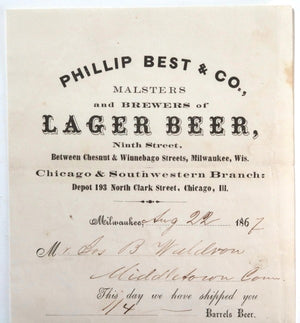 PHILLIP BEST & CO.,
MALSTERS
and BREWERS of
LAGER BEER,
Ninth Street,
Between Chesnut & Winnebago Streets, Milwaukee, Wis.
Chicago & Southwestern Branch:
Depot 193 North Clark Street, Chicago, Ill.
Milwaukee, Aug 22 1867
Mr Jos B Waldron
Middletown Conn.
This day we have shipped you
1/4 Barrels Beer.